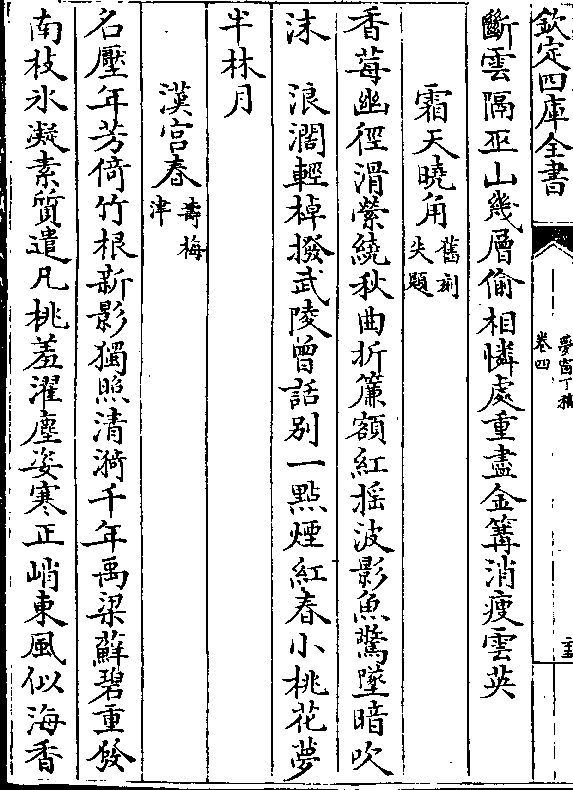 欽定四庫全書
夢窗丁稿
卷四
斷雲隔巫山幾層偷相憐處重盡金篝消瘦雲英
霜天曉角 舊刻失題
香莓幽徑滑縈繞秋曲折簾額紅揺波影魚驚墜暗吹
沫　浪濶輕棹撥武陵曾話别一點煙紅春小桃花夢
半林月
漢宫春 壽梅津
名壓年芳倚竹根新影獨照清漪千年禹梁蘚碧重發
南枝氷凝素質遣凡桃羞濯塵姿寒正峭東風似海香